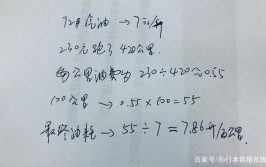 92#汽油 → 7元/升
230元跑了420公里.
每公里油费为 230÷420≈0.55
100公里 → 0.55×100=55
最终油耗 → 55÷7=7.86升/百公里.
百家号/知行者爱撞在线